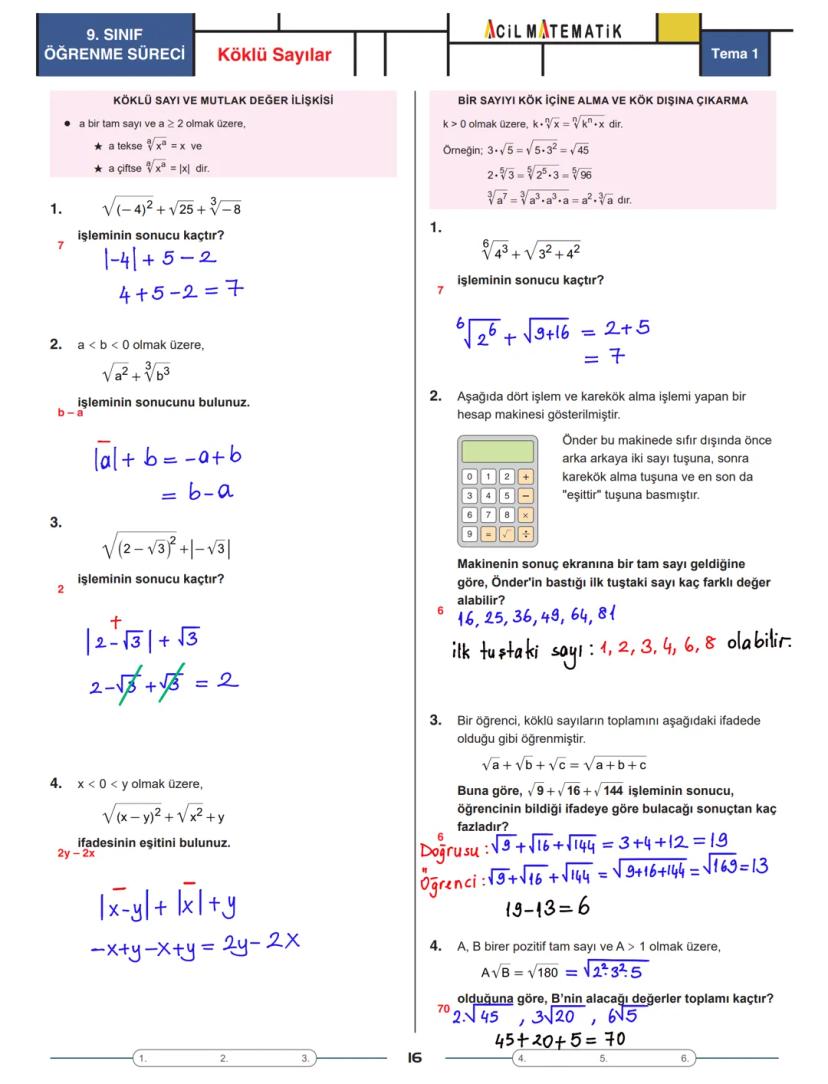 9. SINIF
ÖĞRENME SÜRECİ
Köklü Sayılar
ACİL MATEMATİK
Tema 1
KÖKLÜ SAYI VE MUTLAK DEĞER İLİŞKİSİ
• a bir tam sayı ve a ≥ 2 olmak üzere,
★ a tekse ᵃ√xᵃ = x ve
★ a çiftse ᵃ√xᵃ = |x| dir.
1. √(–4)² + √25 + ³√–8
işleminin sonucu kaçtır?
7
|-4| + 5 - 2
4+5-2 = 7
2. a < b < 0 olmak üzere,
√a² + ³√b³
işleminin sonucunu bulunuz.
b – a
|a| + b = -a+b
= b-a
3.
√(2 – √3)² + |– √3|
işleminin sonucu kaçtır?
2
+
|2-√3| + √3
2-√3 + √3 = 2
4. x < 0 < y olmak üzere,
√(x – y)² + √x² + y
ifadesinin eşitini bulunuz.
2y – 2x
|x-y| + |x| + y
-x+y-x+y = 2y-2x
BİR SAYIYI KÖK İÇİNE ALMA VE KÖK DIŞINA ÇIKARMA
k > 0 olmak üzere, k·ⁿ√x = ⁿ√kⁿ·x dir.
Örneğin; 3·√5 = √5·3² = √45
2·⁵√3 = ⁵√2⁵·3 = ⁵√96
³√a⁷ = ³√a³·a³·a = a²·³√a dır.
1.
⁶√4³ + √3² + 4²
işleminin sonucu kaçtır?
7
⁶√2⁶ + √9+16 = 2+5
= 7
2. Aşağıda dört işlem ve karekök alma işlemi yapan bir
hesap makinesi gösterilmiştir.
0 1 2 +
3 4 5 –
6 7 8 ×
9 = √ ÷
Önder bu makinede sıfır dışında önce
arka arkaya iki sayı tuşuna, sonra
karekök alma tuşuna ve en son da
"eşittir" tuşuna basmıştır.
Makinenin sonuç ekranına bir tam sayı geldiğine
göre, Önder'in bastığı ilk tuştaki sayı kaç farklı değer
alabilir?
6
16, 25, 36, 49, 64, 81
ilk tuştaki sayı : 1, 2, 3, 4, 6, 8 olabilir.
3. Bir öğrenci, köklü sayıların toplamını aşağıdaki ifadede
olduğu gibi öğrenmiştir.
√a + √b + √c = √a + b + c
Buna göre, √9 + √16 + √144 işleminin sonucu,
öğrencinin bildiği ifadeye göre bulacağı sonuçtan kaç
fazladır?
6
Doğrusu : √9 + √16 + √144 = 3+4+12 = 19
Öğrenci : √9 + √16 + √144 = √9+16+144 = √169 = 13
19-13 = 6
4. A, B birer pozitif tam sayı ve A > 1 olmak üzere,
A√B = √180 = √2².3².5
olduğuna göre, B'nin alacağı değerler toplamı kaçtır?
70
2.√45 , 3√20 , 6√5
45+20+5 = 70
1. 2. 3.
16
4. 5. 6.